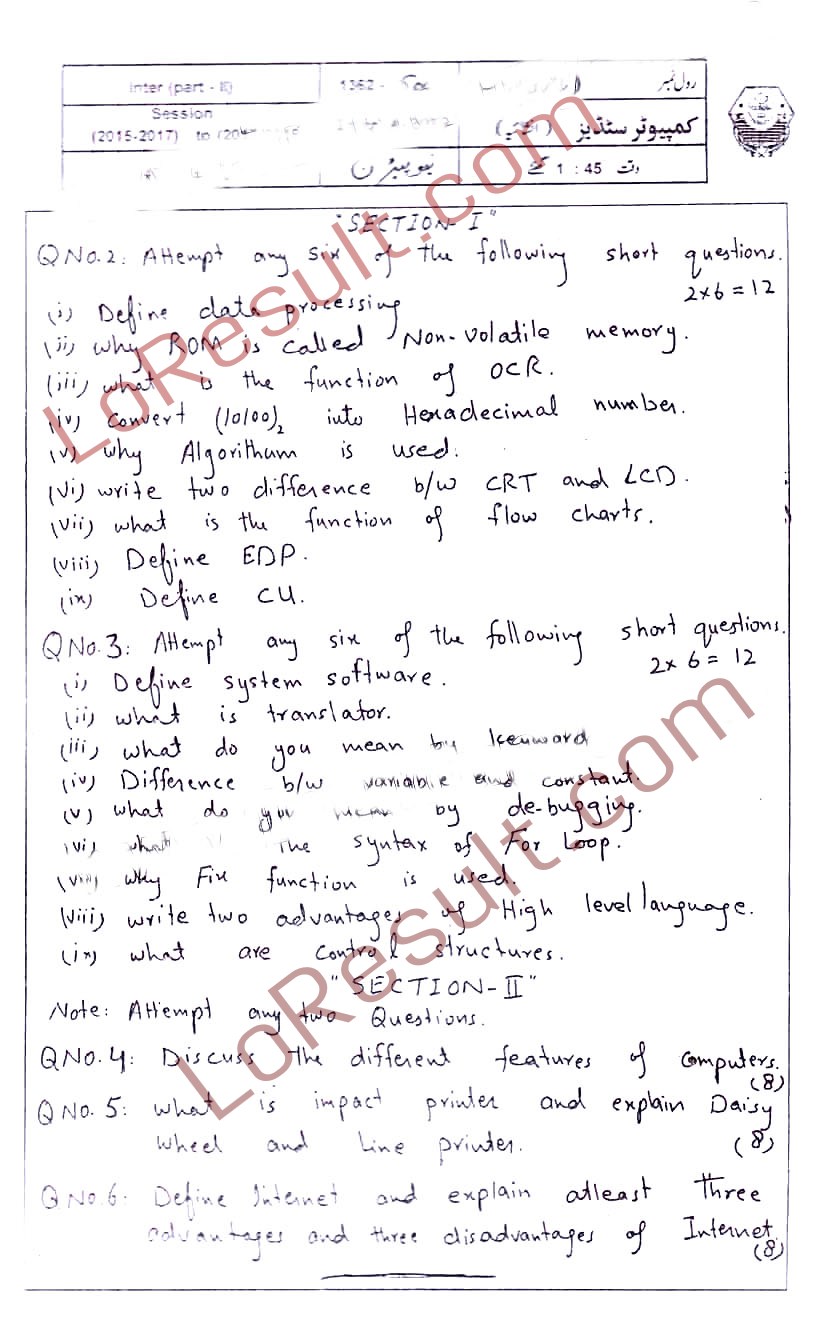 Inter (part - II)
1362 -
رول نمبر
Session
(2015-2017) to
کمپیوٹر سٹڈیز
وقت 1 : 45 گھنٹے
نیو پیٹرن
"SECTION-I"
Q No.2: Attempt any six of the following short questions.
2×6 = 12
(i) Define data processing
(ii) why ROM is called Non-volatile memory.
(iii) what is the function of OCR.
(iv) convert (10100)₂ into Hexadecimal number.
(v) why Algorithum is used.
(vi) write two difference b/w CRT and LCD.
(vii) what is the function of flow charts.
(viii) Define EDP.
(ix) Define CU.
Q No.3: Attempt any six of the following short questions.
2× 6 = 12
(i) Define system software.
(ii) what is translator.
(iii) what do you mean by keyword
(iv) Difference b/w variable and constant.
(v) what do you mean by de-bugging.
(vi) what the syntax of For Loop.
(vii) why Fix function is used.
(viii) write two advantages of High level language.
(ix) what are control structures.
"SECTION-II"
Note: Attempt any two Questions.
Q No.4: Discuss the different features of computers.
(8)
Q No. 5: what is impact printer and explain Daisy
wheel and Line printer. (8)
Q No.6. Define Internet and explain atleast three
advantages and three disadvantages of Internet.
(8)
LoResult.com
LoResult.com